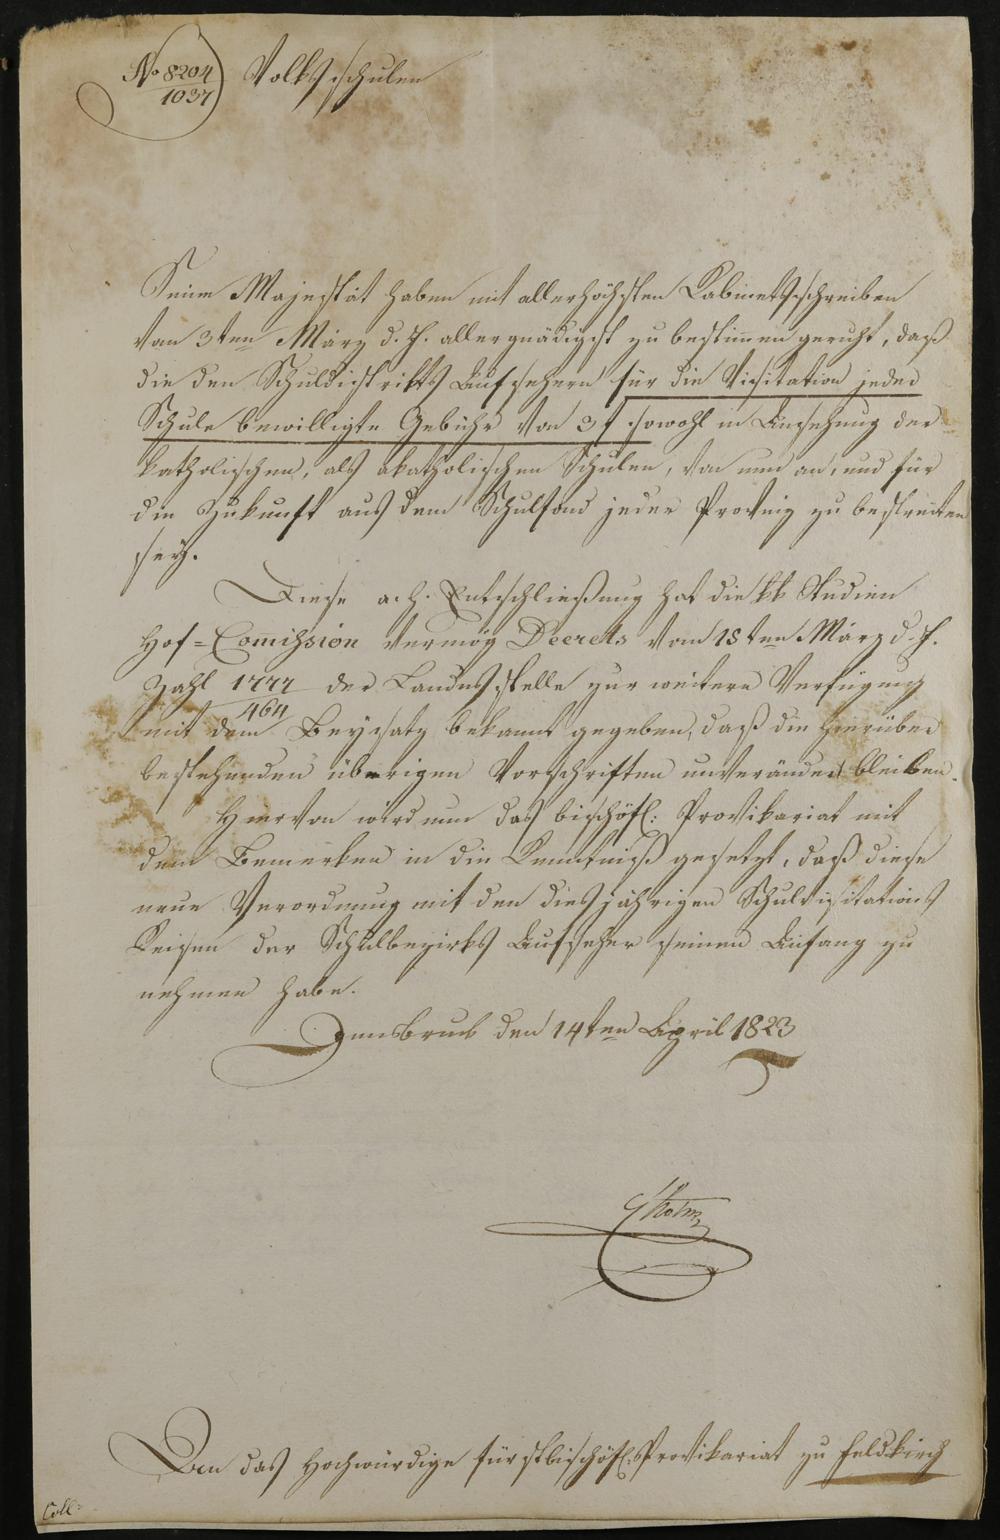 No 8204 Volksschulen
1037
Seine Majestät haben mit allerhöchsten Kabinetsschreiben
vom 3ten März d. J. allergnädigst zu bestimmen geruht, daß
die den Schuldistrikts Aufsehern für die Visitation jeder
Schule bewilligte Gebühr von 3 f sowohl in Ansehung der
katholischen, als akatholischen Schulen, von nun an, und für
die Zukunft aus dem Schulfond jeder Provinz zu bestreiten
sey.
Diese a. h. Entschließung hat die kk Studien
Hof=Comission vermög Decrets vom 15ten März d. J.
Zahl 1777 der Landesstelle zur weitern Verfügung
464
mit dem Beysatz bekannt gegeben, daß die hierüber
bestehenden übrigen Vorschriften unverändert bleiben.
Hievon wird nun das bischöfl: Provikariat mit
dem Bemerken in die Kenntniß gesetzt, daß diese
neue Verordnung mit den diesjährigen Schulvisitations
Reisen der Schulbezirks Aufseher seinen Anfang zu
nehmen habe.
Innsbruck den 14ten April 1823
An das Hochwürdige fürstbischöfl: Provikariat zu Feldkirch
Coll: